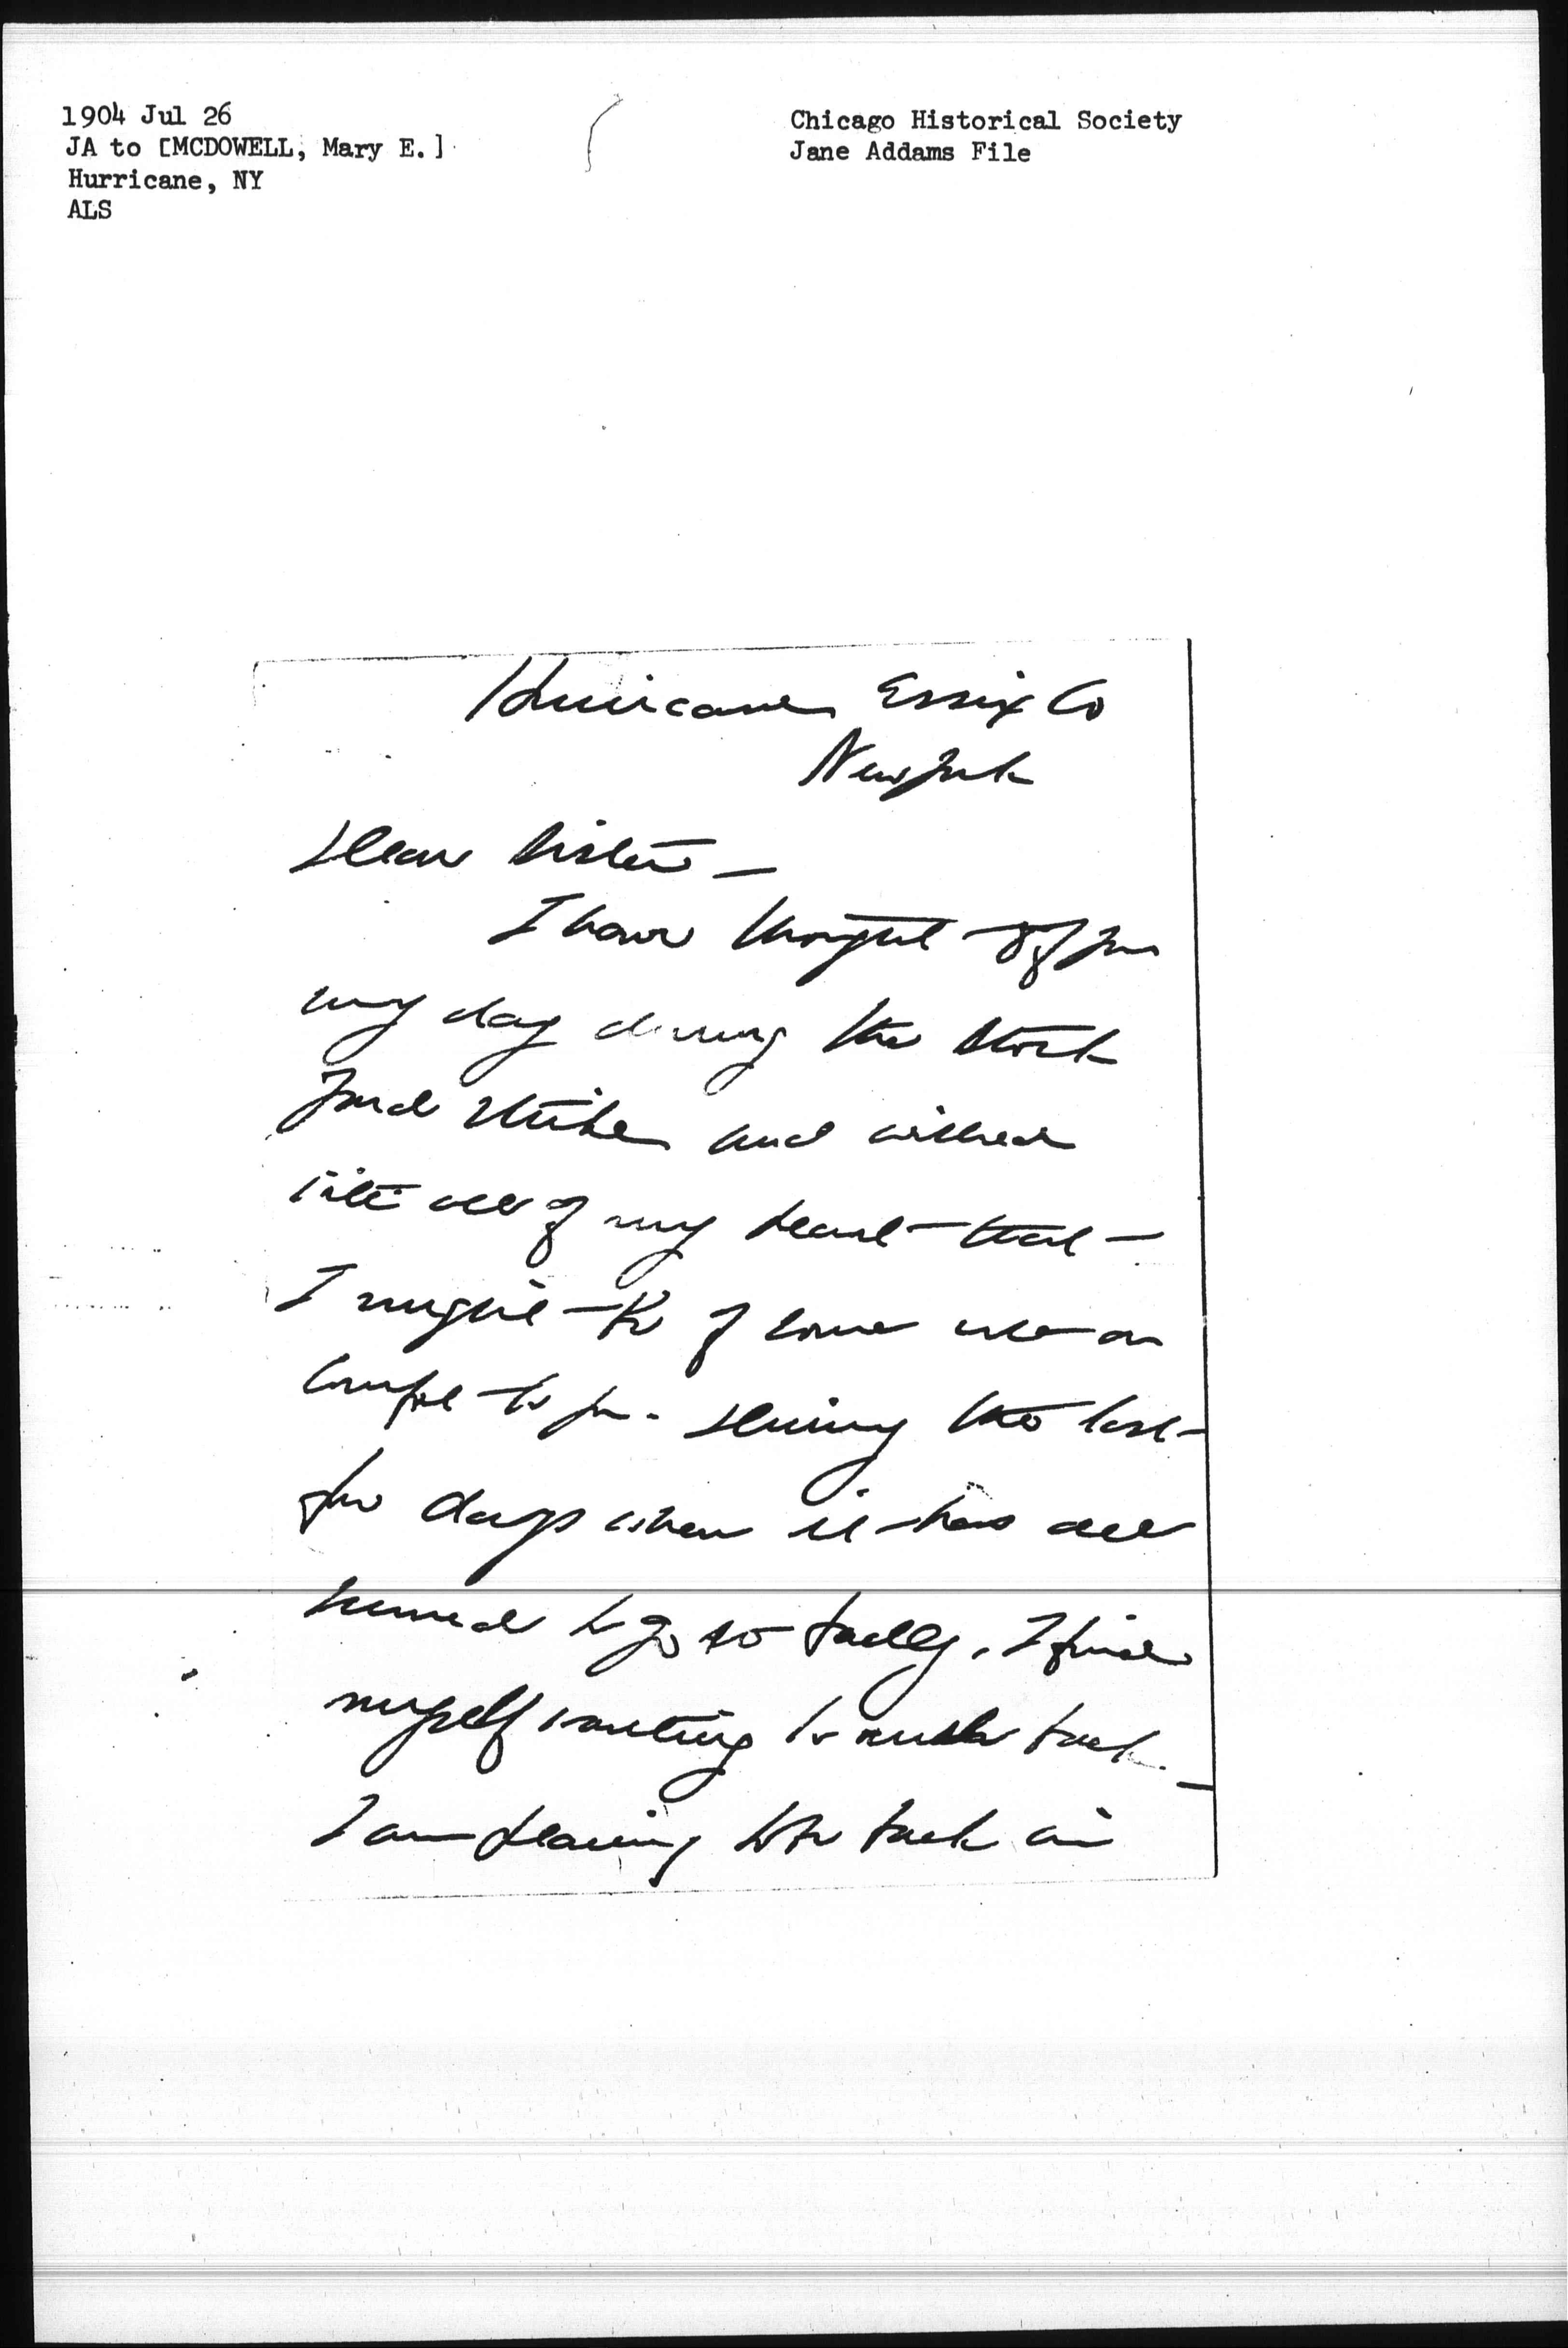 1904 Jul 26
JA to [MCDOWELL, Mary E.]
Hurricane, NY
ALS
Chicago Historical Society
Jane Addams File
Hurricane Essex Co
New York
Dear Sister —
I have thought of you
every day during the stock
yard strike and wished
with all of my heart that
I might be of some use or
comfort to you. During the last
few days when it has all
seemed to go so badly, I find
myself wanting to rush back —
I am planning to be back in